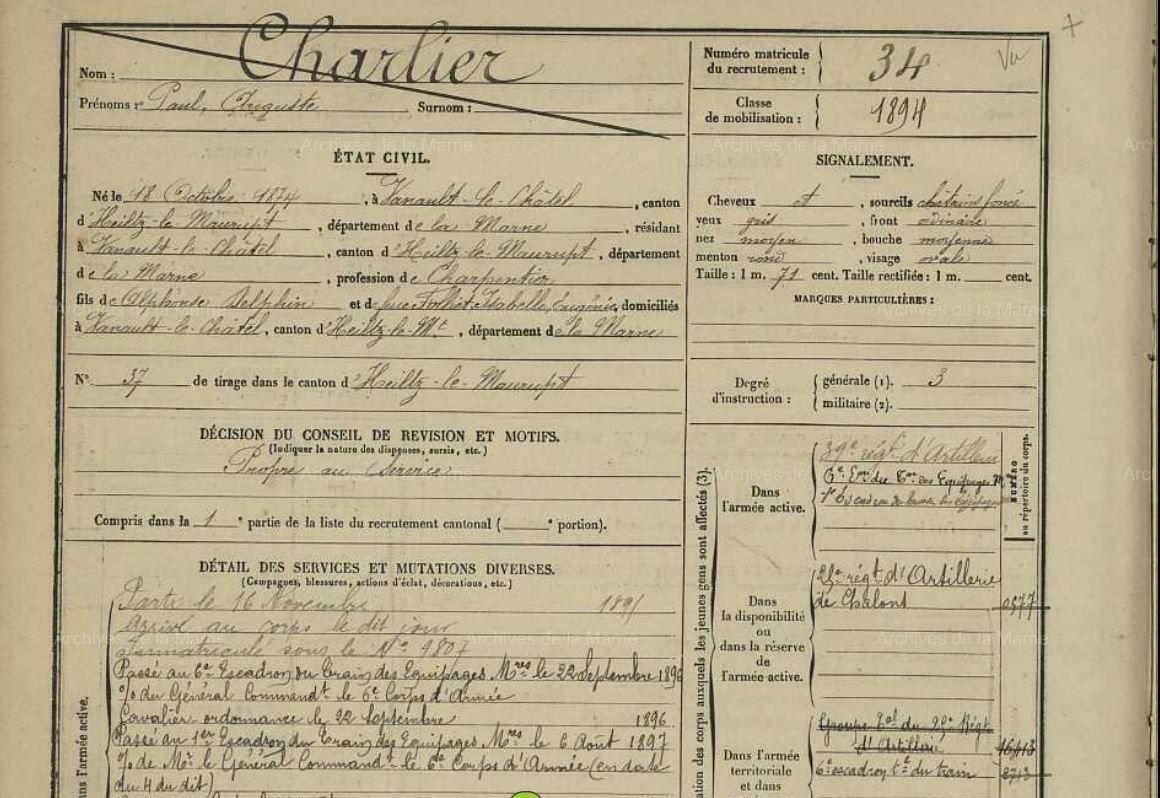 Nom : Charlier
Prénoms : Paul, Auguste Surnom :
Numéro matricule
du recrutement : 34
Vu
Classe
de mobilisation : 1894
ÉTAT CIVIL.
Né le 18 Octobre 1874, à Vanault-le-Châtel, canton
d'Heiltz-le-Maurupt, département de la Marne, résidant
à Vanault-le-Châtel, canton d'Heiltz-le-Maurupt, département
de la Marne, profession de Charpentier
fils de Alphonse Delphin et de Isabelle, Eugénie, domiciliés
à Vanault-le-Châtel, canton d'Heiltz-le-Mt, département de la Marne
N° 37 de tirage dans le canton d'Heiltz-le-Maurupt
SIGNALEMENT.
Cheveux et, sourcils châtain foncé
yeux gris, front ordinaire
nez moyen, bouche moyenne
menton rond, visage ovale
Taille : 1 m. 71 cent. Taille rectifiée : 1 m. cent.
MARQUES PARTICULIÈRES :
Degré
d'instruction :
générale (1). 3
militaire (2).
DÉCISION DU CONSEIL DE REVISION ET MOTIFS.
(Indiquer la nature des dispenses, sursis, etc.)
Propre au service
Compris dans la 1e partie de la liste du recrutement cantonal ( e portion).
DÉTAIL DES SERVICES ET MUTATIONS DIVERSES.
(Campagnes, blessures, actions d'éclat, décorations, etc.)
Parti le 16 Novembre 1895
Arrivé au corps le dit jour
Immatriculé sous le N° 4807
Passé au 6e Escadron du Train des Equipages Mres le 22 Septembre 1896
%o du Général Commandt le 6e Corps d'Armée
Cavalier ordonnance le 22 Septembre 1896.
Passé au 1er Escadron du Train des Equipages Mres le 6 Août 1897
%o de Mr le Général Commandt le 6e Corps d'Armée (en date
du 4 du dit)
ans l'armée active.
ation des corps auxquels les jeunes gens sont affectés (3).
NUMÉRO
au répertoire du corps.
Dans
l'armée active.
39e régt d'Artillerie
6e Eon du Tr. des Equipages
1er Escadron du Train des Equipages
Dans
la disponibilité
ou
dans la réserve
de
l'armée active.
25e régt d'Artillerie
de Châlons 0577
Dans l'armée
territoriale
et dans
Groupe Tal du 25e Régt
d'Artillerie
6e escadron tal du train
Archives de la Marne
Archives de la Marne
Archives de la Marne
Archives de la Marne
Archives de la Marne
Archives de la Marne
Archives de la Marne
Archives de la Marne